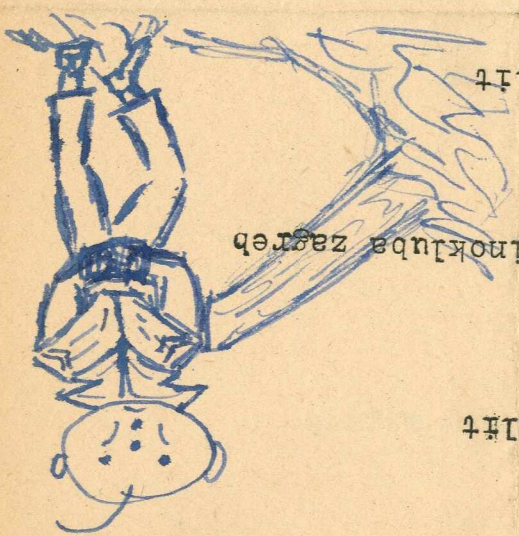 lit
inokluba zagreb
it